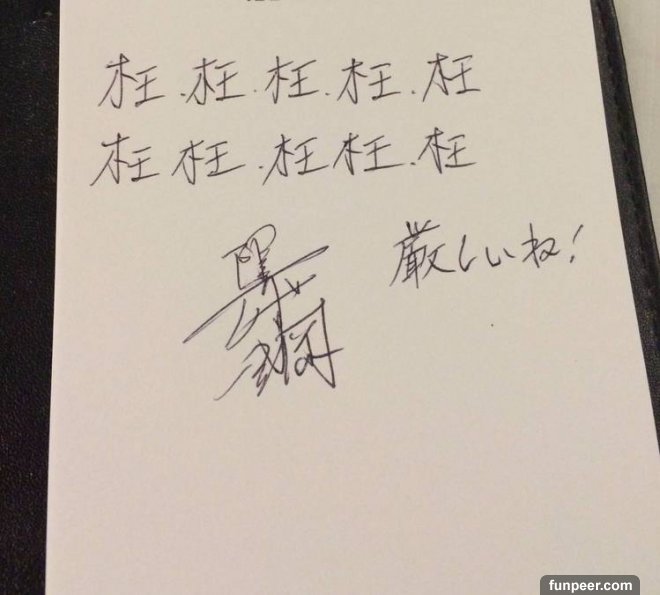 枉.枉.枉.枉.枉
枉枉.枉枉.枉
厳しいね!
funpeer.com